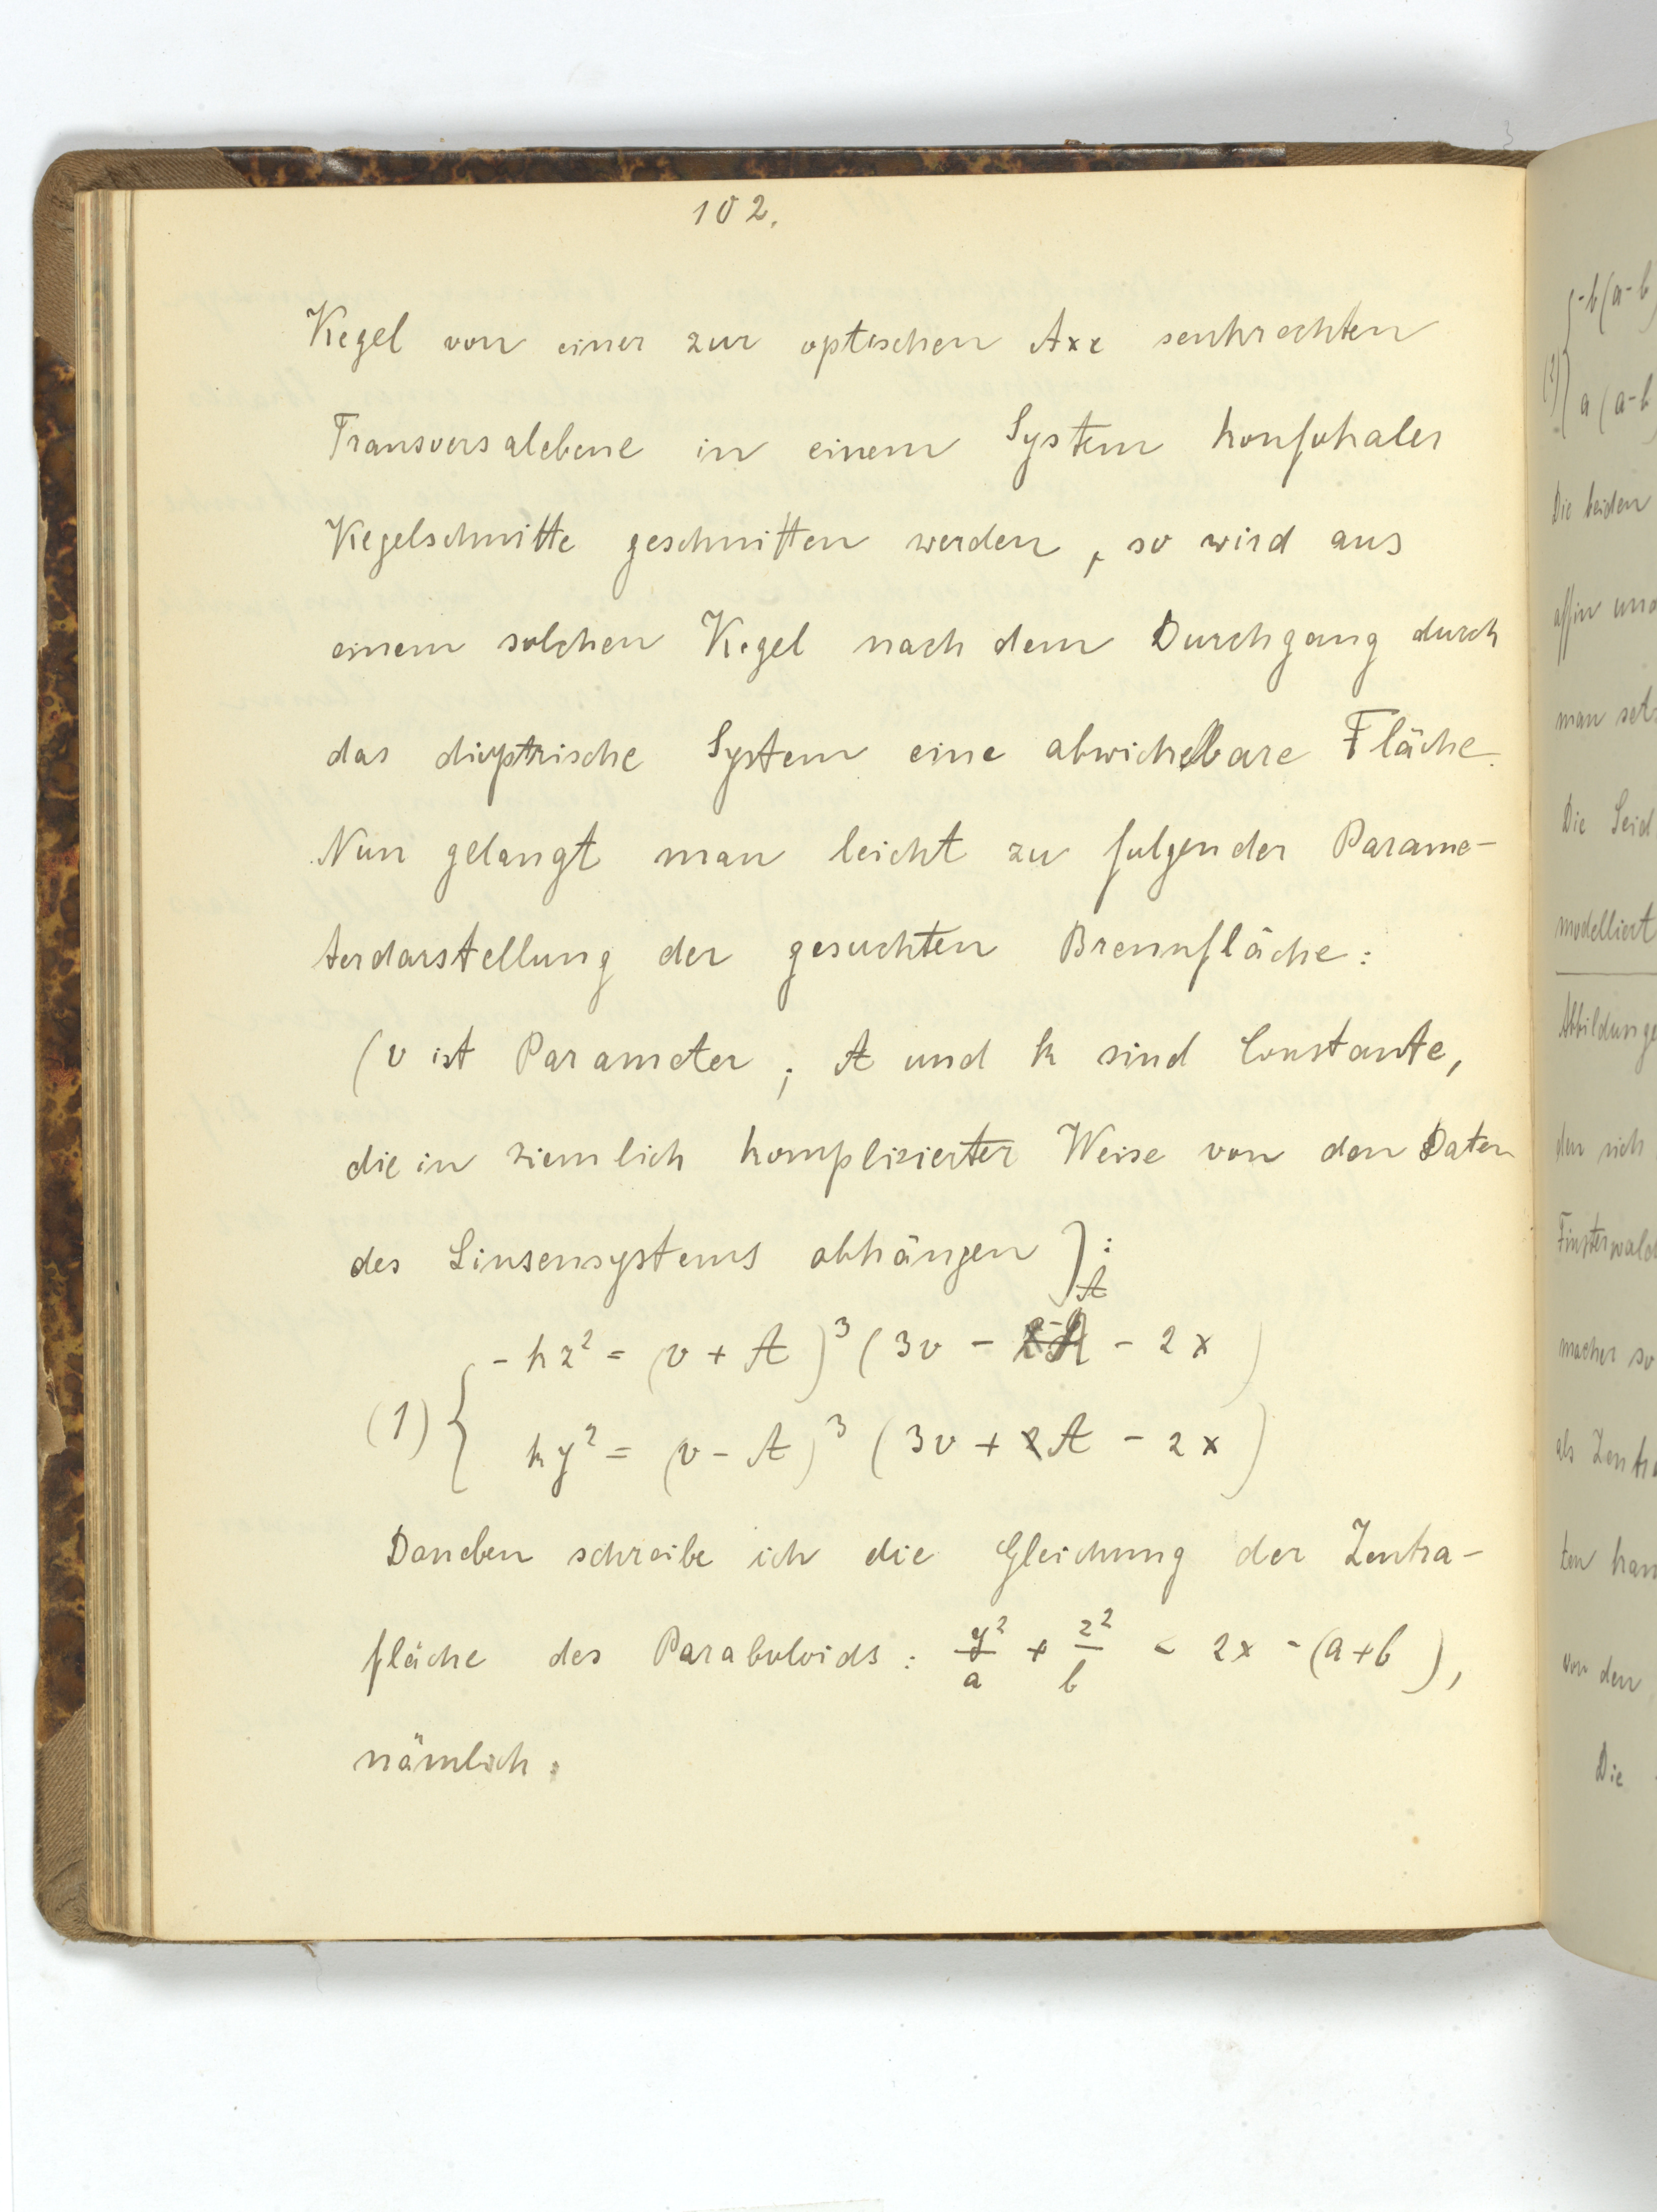 102.
Kegel von einer zur optischen Axe senkrechten
Transversalebene in einem System konfokaler
Kegelschnitte geschnitten werden, so wird aus
einem solchen Kegel nach dem Durchgang durch
das dioptrische System eine abwickelbare Fläche.
Nun gelangt man leicht zu folgender Parame-
terdarstellung der gesuchten Brennfläche:
(v ist Parameter; A und k sind Constante,
die in ziemlich komplizierter Weise von den Daten
des Linsensystems abhängen):
- kz² = (v + A)³ (3v - A - 2x)
(1) { ky² = (v - A)³ (3v + A - 2x)
Daneben schreibe ich die Gleichung der Zentra-
fläche des Paraboloids: y²/a + z²/b = 2x - (a+b),
nämlich:
-b(a-b
(2) { a(a-b
Die beiden
affin und
man setz
Die Seid
modelliert
Abbildunge
den sich
Finsterwald
macher so
als Zentra
ten kan
von den
Die